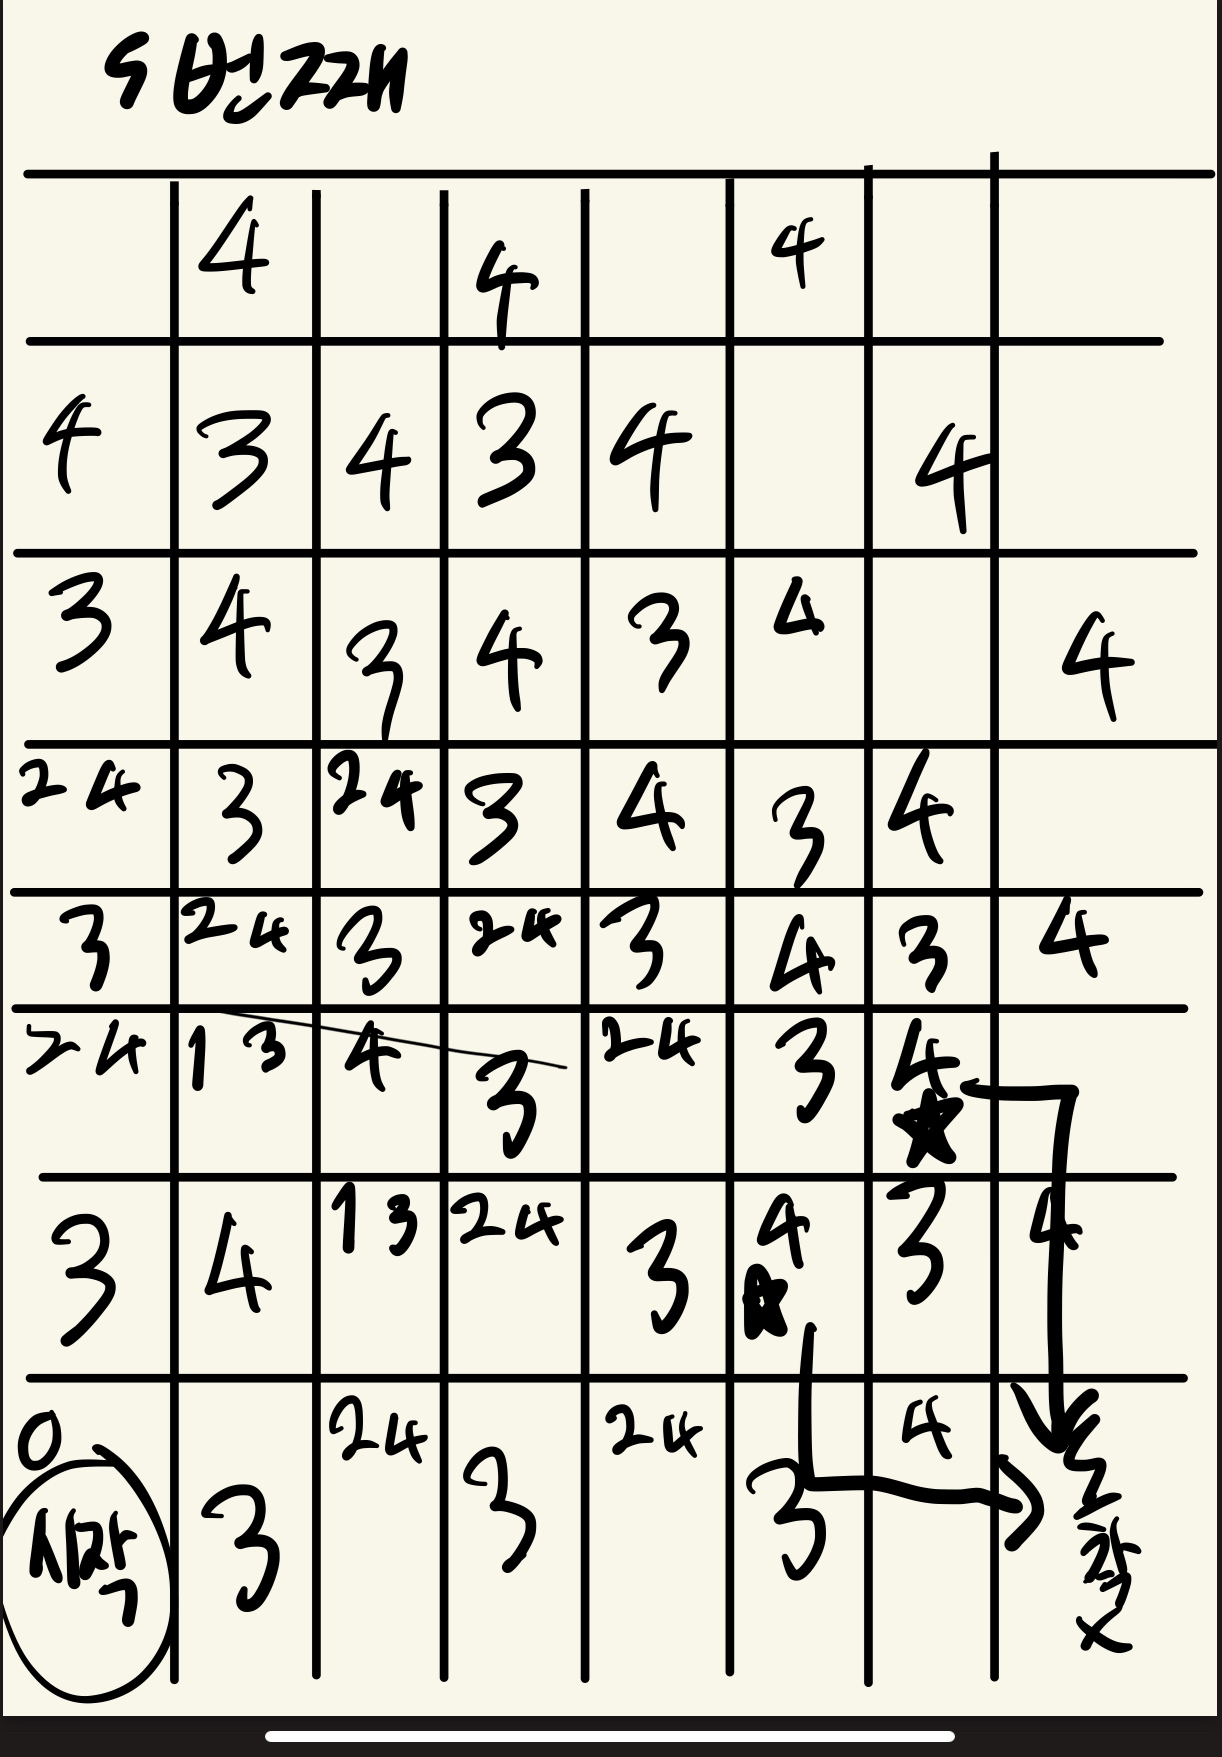 5번째
4 4 4
4 3 4 3 4 4
3 4 3 4 3 4 4
2 4 3 2 4 3 4 3 4
3 2 4 3 2 4 3 4 3 4
2 4 1 3 4 3 2 4 3 4
3 4 1 3 2 4 3 4 3 4
0 2 4 2 4 4
시작 3 3 3
X